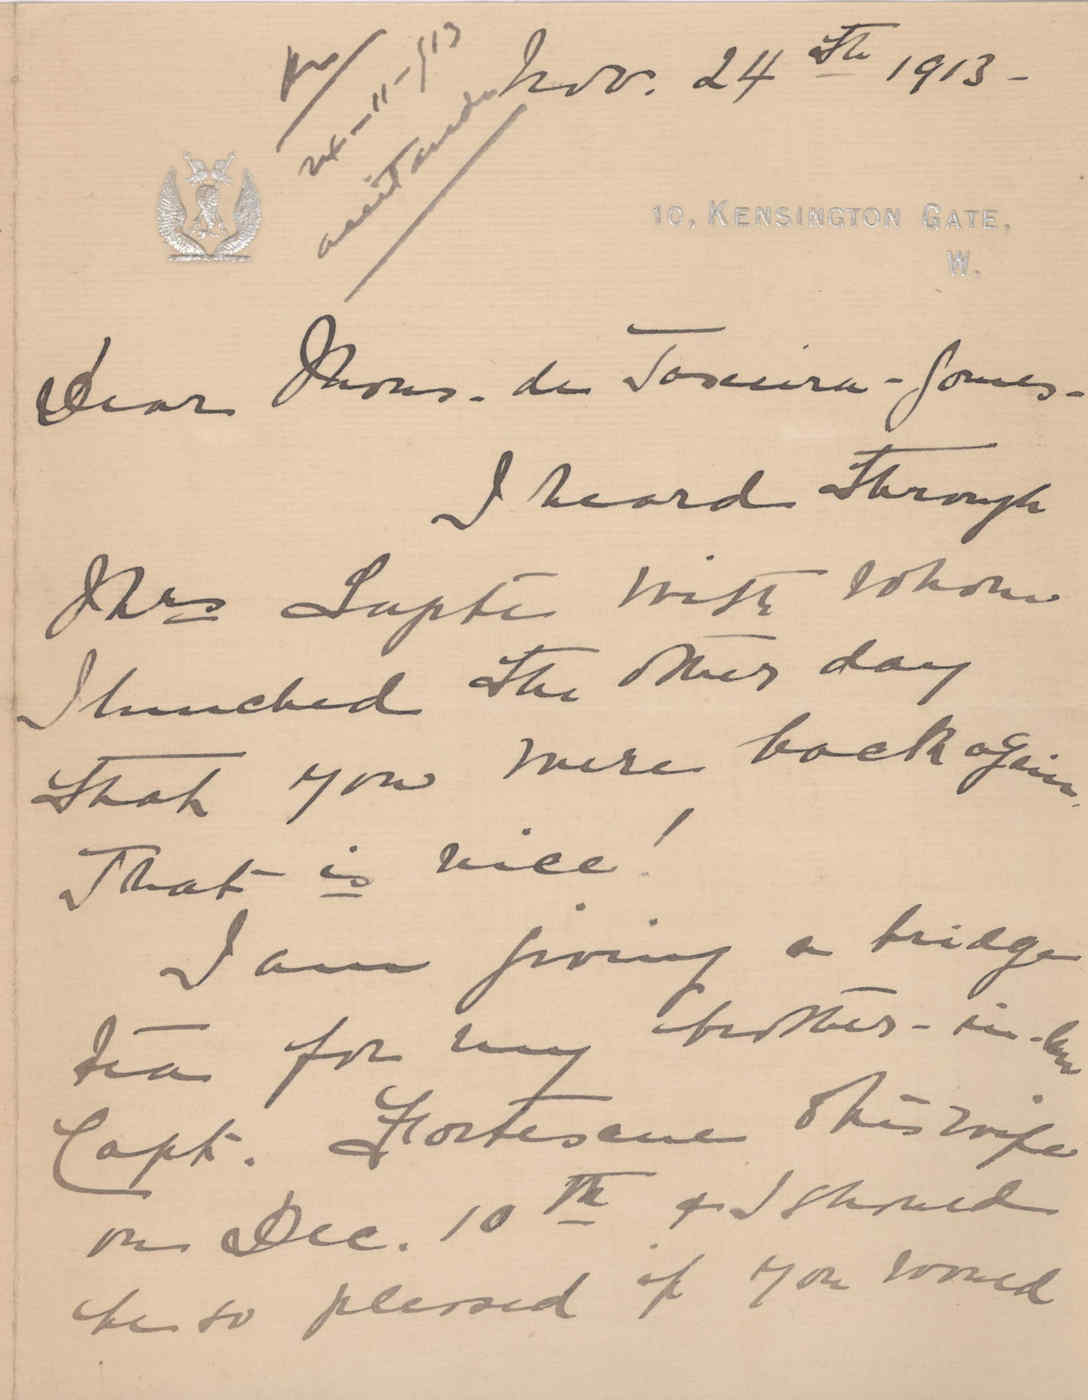 Nov. 24th 1913-
24-11-913
10, KENSINGTON GATE.
W.
Dear Mons. de Taxeira-Gomes-
I heard through
Mrs with whom
I lunched the other day
that you were back again.
That is nice!
I am giving a bridge
tea for my brother-in-law
Capt. Fortescue & his wife
on Dec. 10th & I should
be so pleased if you would